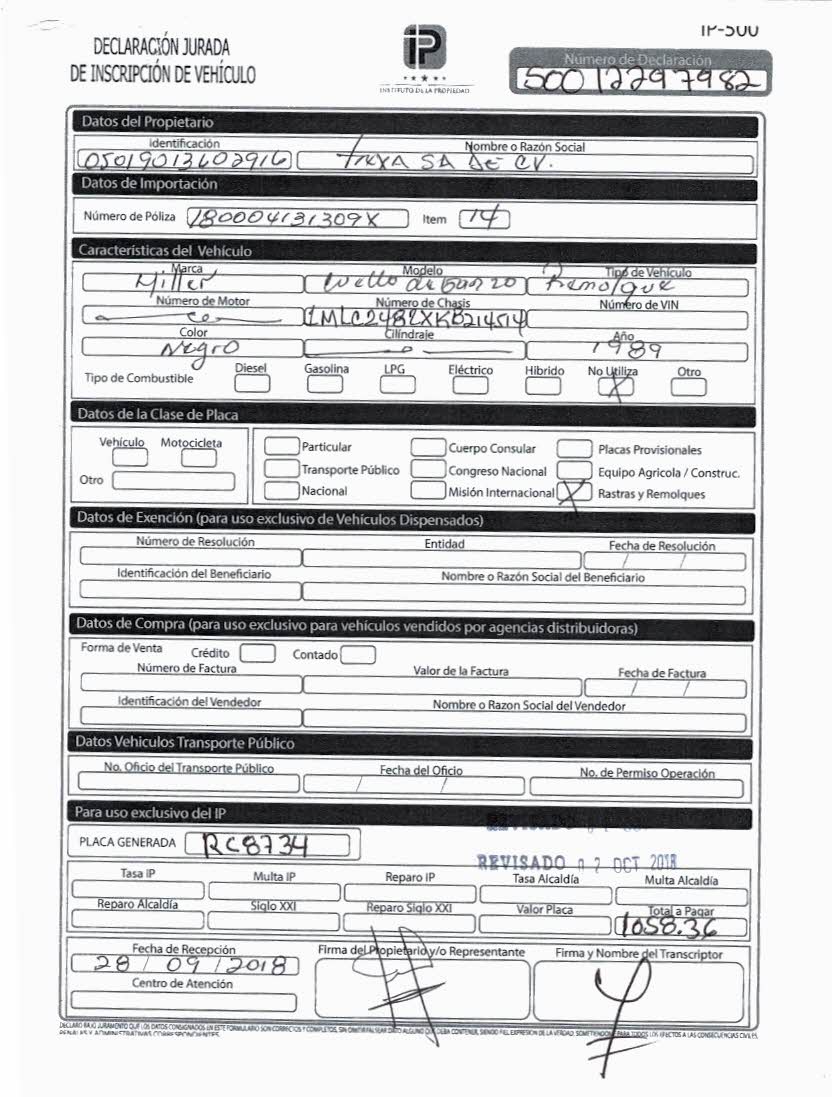 IP-500
DECLARACIÓN JURADA
DE INSCRIPCIÓN DE VEHÍCULO
IP
INSTITUTO DE LA PROPIEDAD
Número de Declaración
50012297982
Datos del Propietario
Identificación Nombre o Razón Social
05019013602916 SA DE CV.
Datos de Importación
Número de Póliza 180004131309X Item 14
Características del Vehículo
Marca Modelo Tipo de Vehículo
Miller Cuello de Ganzo Remolque
Número de Motor Número de Chasis Número de VIN
1MLC2482XKB214514
Color Cilíndraje Año
Negro 1989
Tipo de Combustible Diesel Gasolina LPG Eléctrico Hibrido No Utiliza Otro
X
Datos de la Clase de Placa
Vehículo Motocicleta
Otro
Particular Cuerpo Consular Placas Provisionales
Transporte Público Congreso Nacional Equipo Agricola / Construc.
Nacional Misión Internacional X Rastras y Remolques
Datos de Exención (para uso exclusivo de Vehículos Dispensados)
Número de Resolución Entidad Fecha de Resolución
/ /
Identificación del Beneficiario Nombre o Razón Social del Beneficiario
Datos de Compra (para uso exclusivo para vehículos vendidos por agencias distribuidoras)
Forma de Venta Crédito Contado
Número de Factura Valor de la Factura Fecha de Factura
/ /
Identificación del Vendedor Nombre o Razon Social del Vendedor
Datos Vehiculos Transporte Público
No. Oficio del Transporte Público Fecha del Oficio No. de Permiso Operación
/ /
Para uso exclusivo del IP
PLACA GENERADA RC8734
REVISADO 02 OCT 2018
Tasa IP Multa IP Reparo IP Tasa Alcaldía Multa Alcaldía
Reparo Alcaldía Siglo XXI Reparo Siglo XXI Valor Placa Total a Pagar
1058.36
Fecha de Recepción Firma del Propietario y/o Representante Firma y Nombre del Transcriptor
28 / 09 / 2018
Centro de Atención
DECLARO BAJO JURAMENTO QUE LOS DATOS CONSIGNADOS EN ESTE FORMULARIO SON CORRECTOS Y COMPLETOS, SIN OMITIR FALSEAR DATO ALGUNO QUE DEBA CONTENER, SIENDO FIEL EXPRESION DE LA VERDAD. SOMETIENDOME PARA TODOS LOS EFECTOS A LAS CONSECUENCIAS CIVILES,
PENALES Y ADMINISTRATIVAS CORRESPONDIENTES.